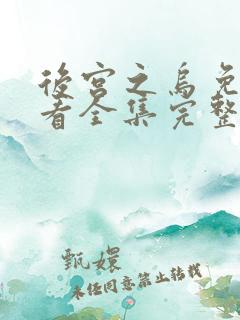 後宮之烏免
看全集完整
甄嬛
未经同意禁止转载